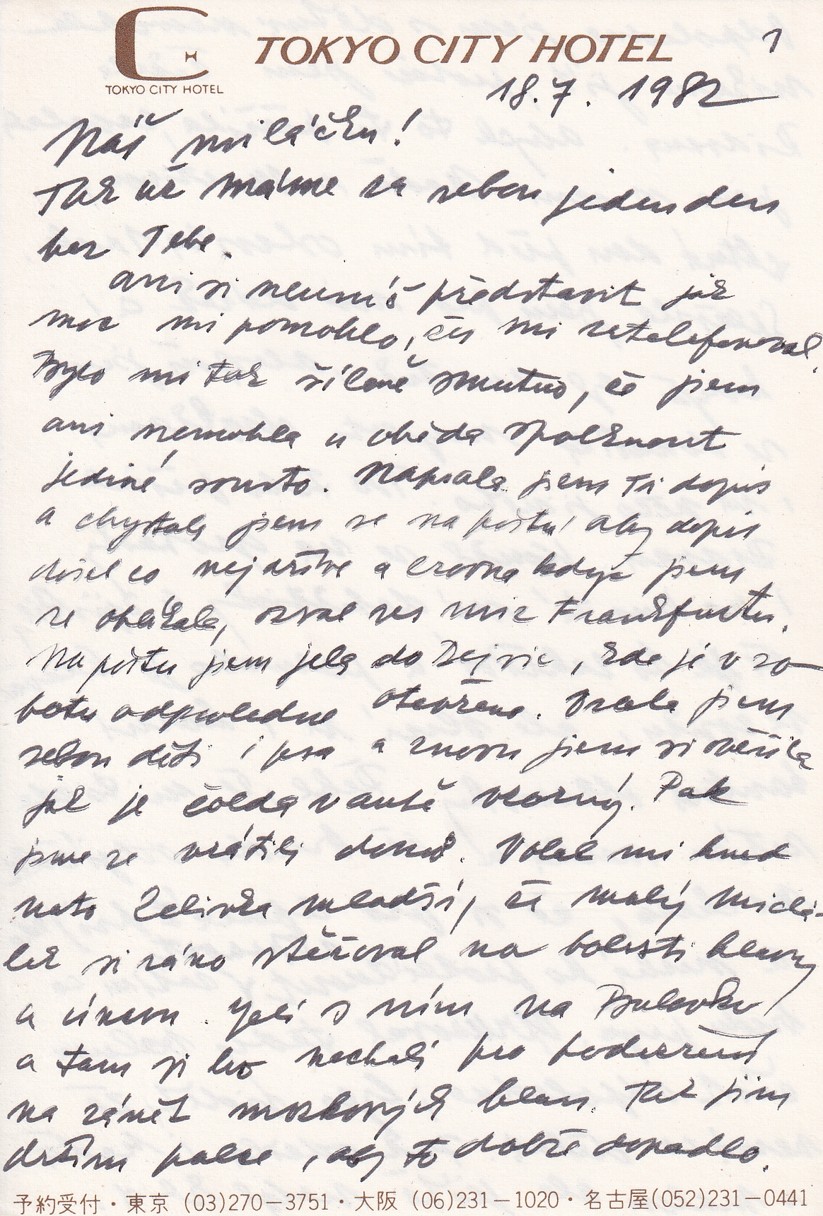 TOKYO CITY HOTEL
TOKYO CITY HOTEL
1
18.7. 1982
Náš miláčku!
Tak už máme za sebou jeden den
bez Tebe.
Ani si neumíš představit jak
moc mi pomohlo, žes mi zatelefonoval.
Bylo mi tak šíleně smutno, že jsem
ani nemohla u oběda spolknout
jediné sousto. Napsala jsem Ti dopis
a chystala jsem se na poštu aby dopis
došel co nejdříve a zrovna když jsem
se oblékala, ozval ses mi z Frankfurtu.
Na poštu jsem jela do Dejvic, kde je v so-
botu odpoledne otevřeno. Brala jsem
sebou děti i psa a znovu jsem si ověřila
jak je v autě vzorný. Pak
jsme se vrátili domů. Volal mi hned
nato Zelivka mladší, že malý Michá-
lek si ráno stěžoval na bolesti hlavy
a únavu. Jeli s ním na Bulovku
a tam si ho nechali pro podezření
na zánět mozkových blan. Tak jim
držím palce, aby to dobře dopadlo.
予約受付・東京 (03)270-3751・大阪 (06)231-1020・名古屋(052)231-0441